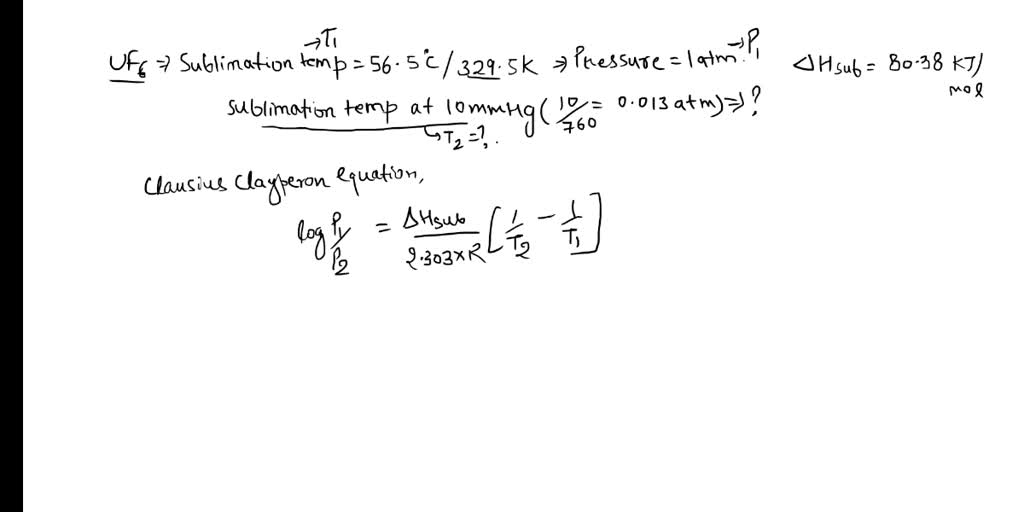 →T₁
UF₆ ⇒ Sublimation temp = 56.5°C / 329.5K ⇒ Pressure = 1atm. →P₁ ΔHsub = 80.38 KJ/mol
sublimation temp at 10mmHg (10/760 = 0.013 atm) ⇒ ?
↳T₂ = ?.
Clausius Clayperon equation,
log P₁/P₂ = ΔHsub / 2.303×R [1/T₂ − 1/T₁]